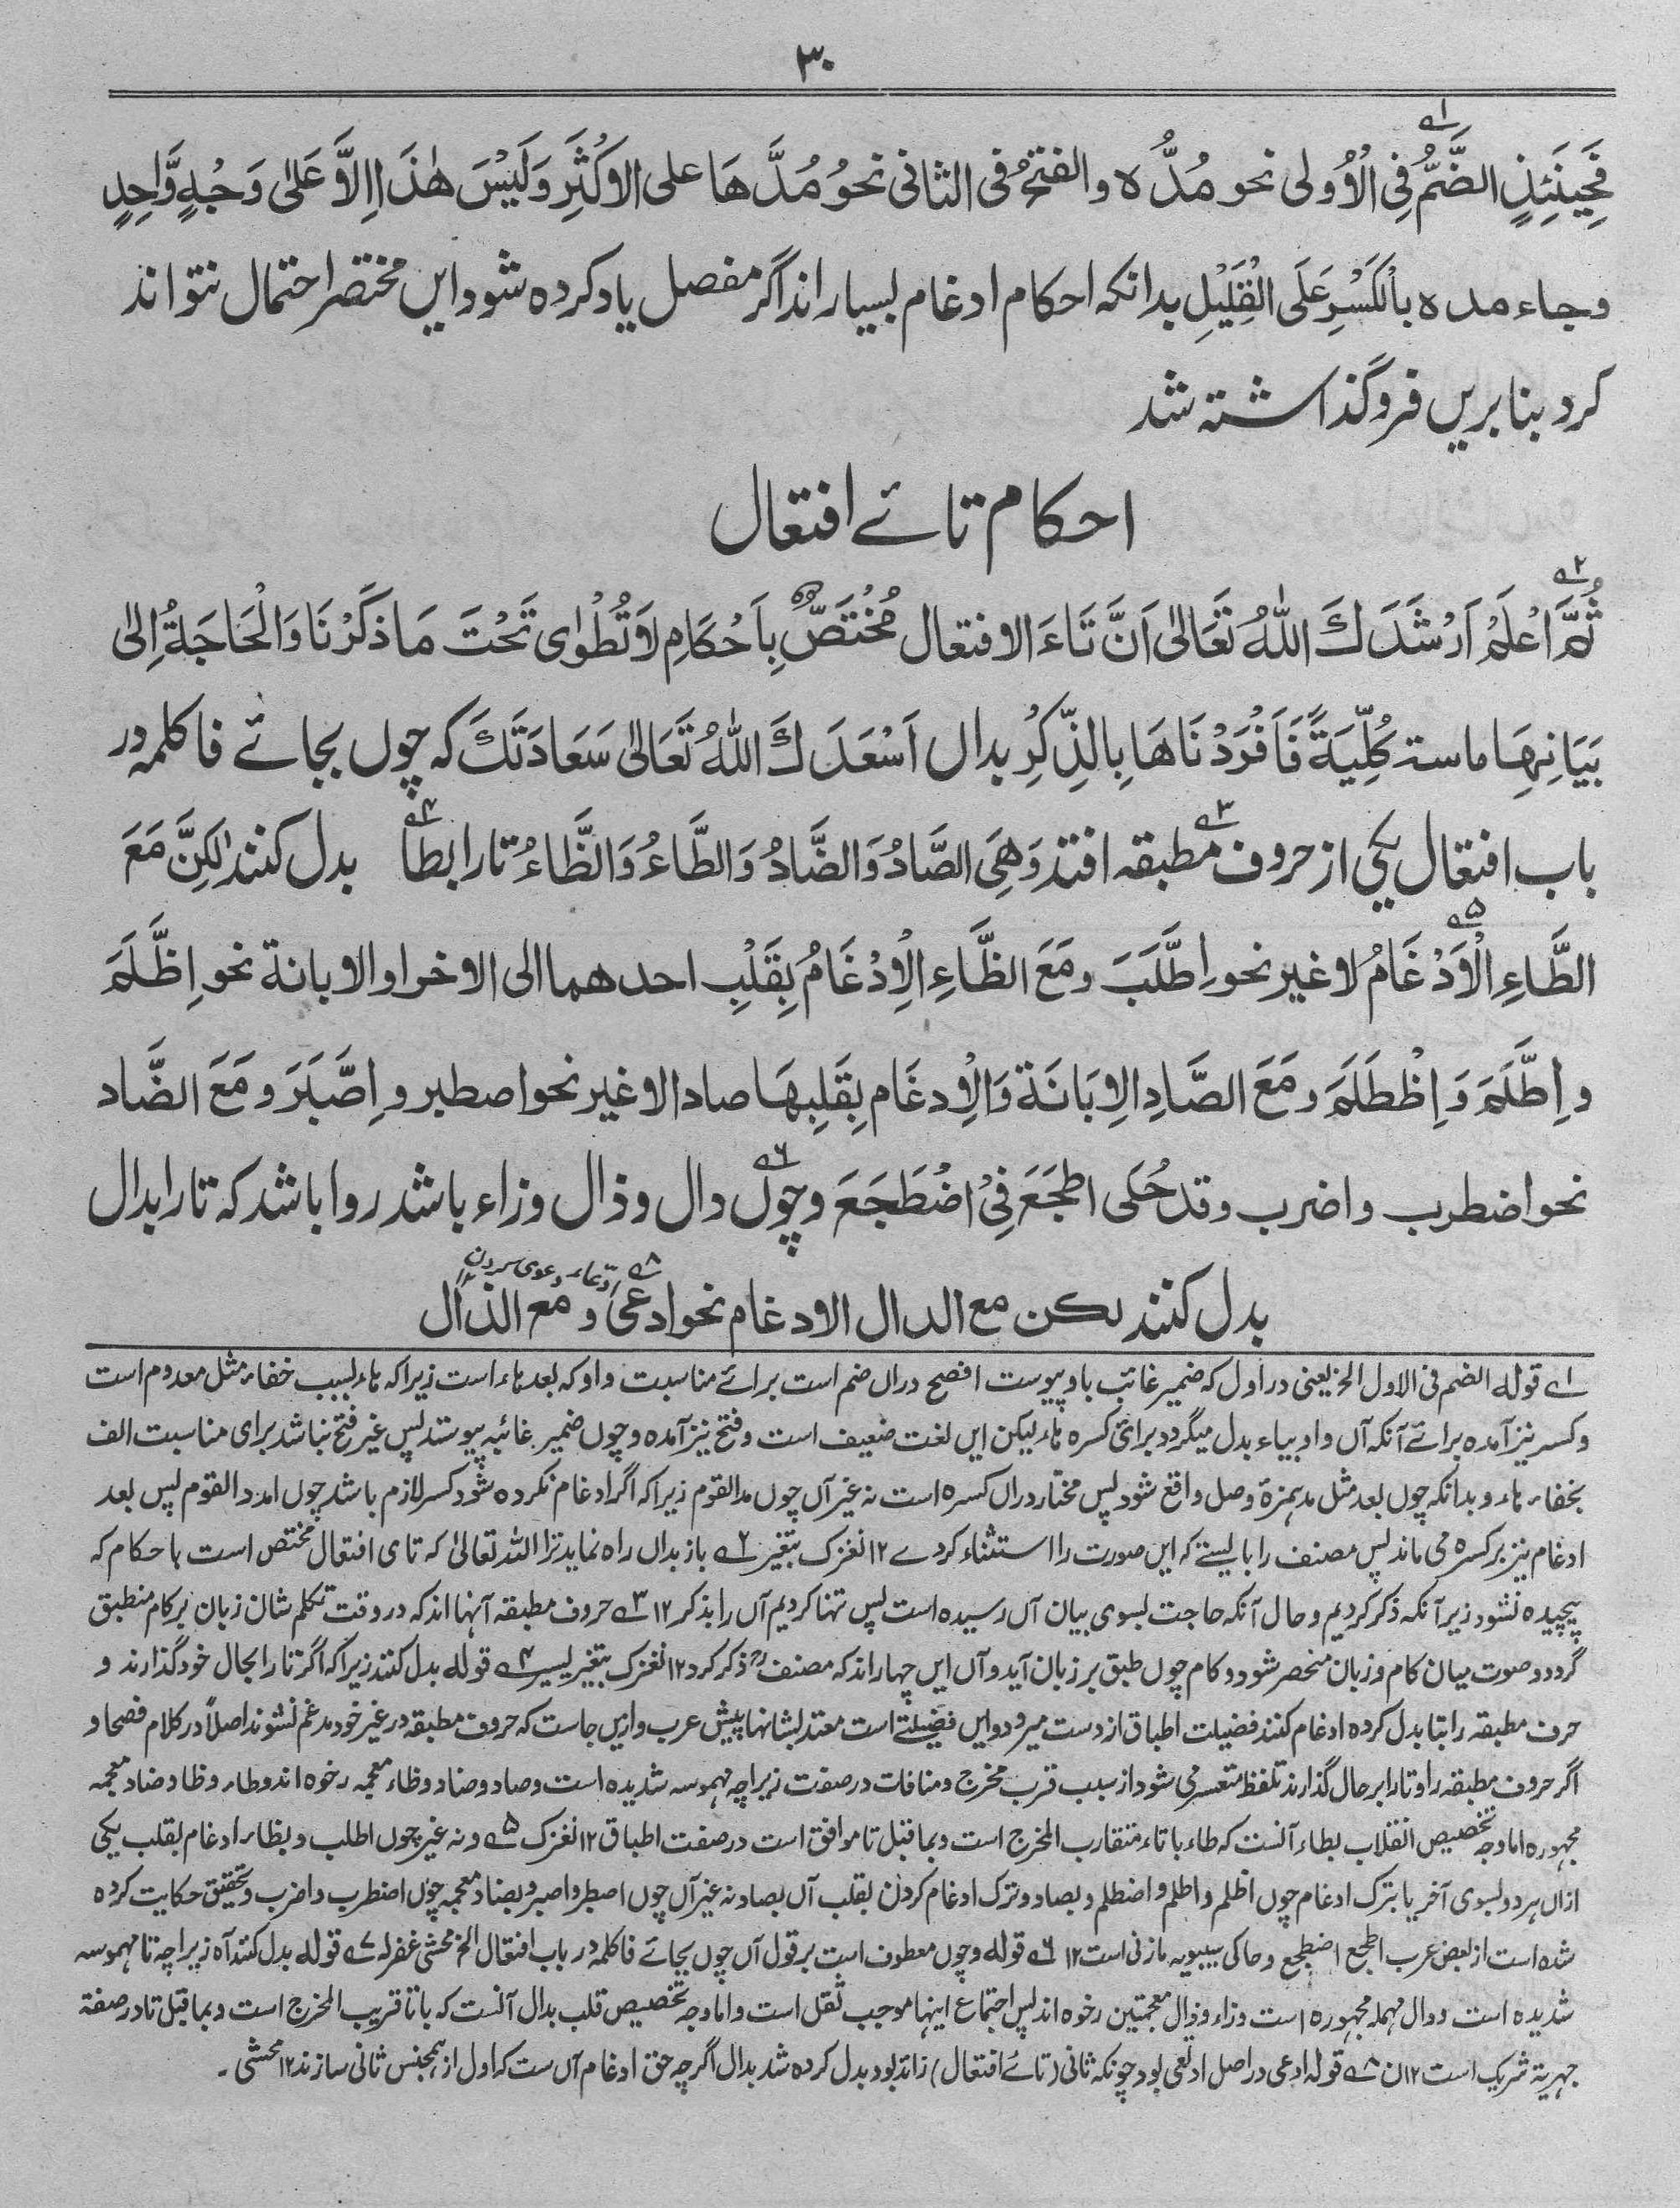 ۳۰
فَحِیْنَئِذٍ الضَّمُّ فِی الْاُوْلی نحو مُدُّه والفتحُ فی الثانی نحوُ مُدَّهَا علی الاکْثَرِ وَلَیْسَ هٰذَا اِلاَّ عَلیٰ وَجْهٍ وَّاحِدٍ
وجاء مده بالْکَسْرِ عَلَی الْقَلِیْلِ بدانکه احکام ادغام بسیار اند اگر مفصل یاد کرده شود ایں مختصر احتمال نتواند
کرد بنا بریں فرو گذاشته شد
احکام تائے افتعال
ثُمَّ اعْلَمْ اَرْشَدَكَ اللّٰهُ تَعَالیٰ اَنَّ تَاءَ الافتعال مُخْتَصٌّ بِاَحْکَامٍ لاَ تُطْوٰی تَحْتَ مَا ذَکَرْنَا وَالْحَاجَةُ اِلیٰ
بَیَانِهَا ماسة کُلِّیَةً فَاَفْرَدْنَاهَا بِالذِّکْرِ بداں اَسْعَدَكَ اللّٰهُ تَعَالیٰ سَعَادَتَكَ که چوں بجائے فا کلمه در
باب افتعال یکی از حروف ۳ مطبقه افتد وَهِیَ الصَّادُ وَالضَّادُ وَالطَّاءُ وَالظَّاءُ تا را بطا ۴ بدل کنند لٰکِنَّ مَعَ
الطَّاءِ الْاِدْغَامُ ۵ لا غیر نحو اِطَّلَبَ ومَعَ الظَّاءِ الْاِدْغَامُ بِقَلْبِ احدهما الی الاخر او الابانة نحو اِظَّلَمَ
و اِطَّلَمَ وَ اِظْطَلَمَ ومَعَ الصَّادِ الاِبَانَة وَالْاِدغَام بِقَلِبهَا صادا لاغیر نحو اصطبر و اِصَّبَرَ ومَعَ الضَّاد
نحو اضطرب واضرب وقد حُکی اطجَعَ فِیْ اضْطَجَعَ وچوں ۶ دال وذال وزاء باشد روا باشد که تا را بدال
بدل کنند لکن مع الدال الادغام نحو ادعیٰ ۸ ومع الذال
۱ قوله الضم فی الاول الخ یعنی در اول که ضمیر غائب با و پیوست افصح دراں ضم است برائے مناسبت واو که بعد هاء است زیرا که هاء بسبب خفاء مثل معدوم است
وکسر نیز آمده برائے آنکه آں واو بیاء بدل میگردد برای کسره هاء لیکن ایں لغت ضعیف است وفتح نیز آمده وچوں ضمیر غائبه پیوستد پس غیر فتح نباشد برای مناسبت الف
بخفاء هاء وبدانکه چوں بعد مثل مد همزهٔ وصل واقع شود پس مختار دراں کسره است نه غیر آں چوں مد القوم زیرا که اگر ادغام نکرده شود کسر لازم باشد چوں امدد القوم پس بعد
ادغام نیز بر کسره می ماند پس مصنف را بایستے که ایں صورت را استثناء کردے ۱۲ نغزک بتغیر ۲ باز بداں راه نماید ترا الله تعالیٰ که تای افتعال مختص است باحکام که
پیچیده نشود زیر آنکه ذکر کردیم وحال آنکه حاجت بسوی بیان آں رسیده است پس تنها کردیم آں را بذکر ۱۲ ۳ حروف مطبقه آنها اند که در وقت تکلم شان زبان بر کام منطبق
گردد وصوت میان کام وزبان منحصر شود وکام چوں طبق بر زبان آید وآں ایں چهار اند که مصنفؒ ذکر کرد ۱۲ نغزک بتغیر یسیر ۴ قوله بدل کنند زیرا که اگر تا را بحال خود گذارند و
حرف مطبقه را بتا بدل کرده ادغام کنند فضیلت اطباق از دست میرود وایں فضیلتے است معتد بشانها پیش عرب وازیں جاست که حروف مطبقه در غیر خود مدغم نشوند اصلاً در کلام فصحا و
اگر حروف مطبقه را و تا را بر حال گذارند تلفظ متعسر می شود از سبب قرب مخرج ومنافات در صفت زیرا چه مهموسه شدیده است وصاد وضاد وظاء معجمه رخوه اند وطاء وظا وضاد معجمه
مجهوره اما وجه تخصیص انقلاب بطاء آنست که طاء با تاء متقارب المخرج است وبما قبل تا موافق است در صفت اطباق ۱۲ نغزک ۵ و نه غیر چوں اطلب وبظاء ادغام بقلب یکی
ازاں هر دو بسوی آخر یا بترک ادغام چوں اظلم واطلم واضطلم وبصاد وترک ادغام کردن بقلب آں بصاد نه غیر آں چوں اصطبر واصبر وبضاد معجمه چوں اضطرب واضرب وبتحقیق حکایت کرده
شده است از بعض عرب اطجع اضطجع وحاکی سیبویه مازنی است ۱۲ ۶ قوله وچوں معطوف است بر قول آں چوں بجائے فا کلمه در باب افتعال الخ محشی غفرله ۷ قوله بدل کنند آه زیرا چه تا مهموسه
شدیده است ودال مهمله مجهوره است وزاء وذال معجمتین رخوه اند پس اجتماع اینها موجب ثقل است واما وجه تخصیص قلب بدال آنست که با تا قریب المخرج است وبما قبل تا در صفة
جهریة شریک است ۱۲ن ۸ قوله ادعی در اصل ادتعی بود چونکه ثانی (تائے افتعال) زائد بود بدل کرده شد بدال اگرچه حق ادغام آں ست که اول از همجنس ثانی سازند ۱۲ محشی۔